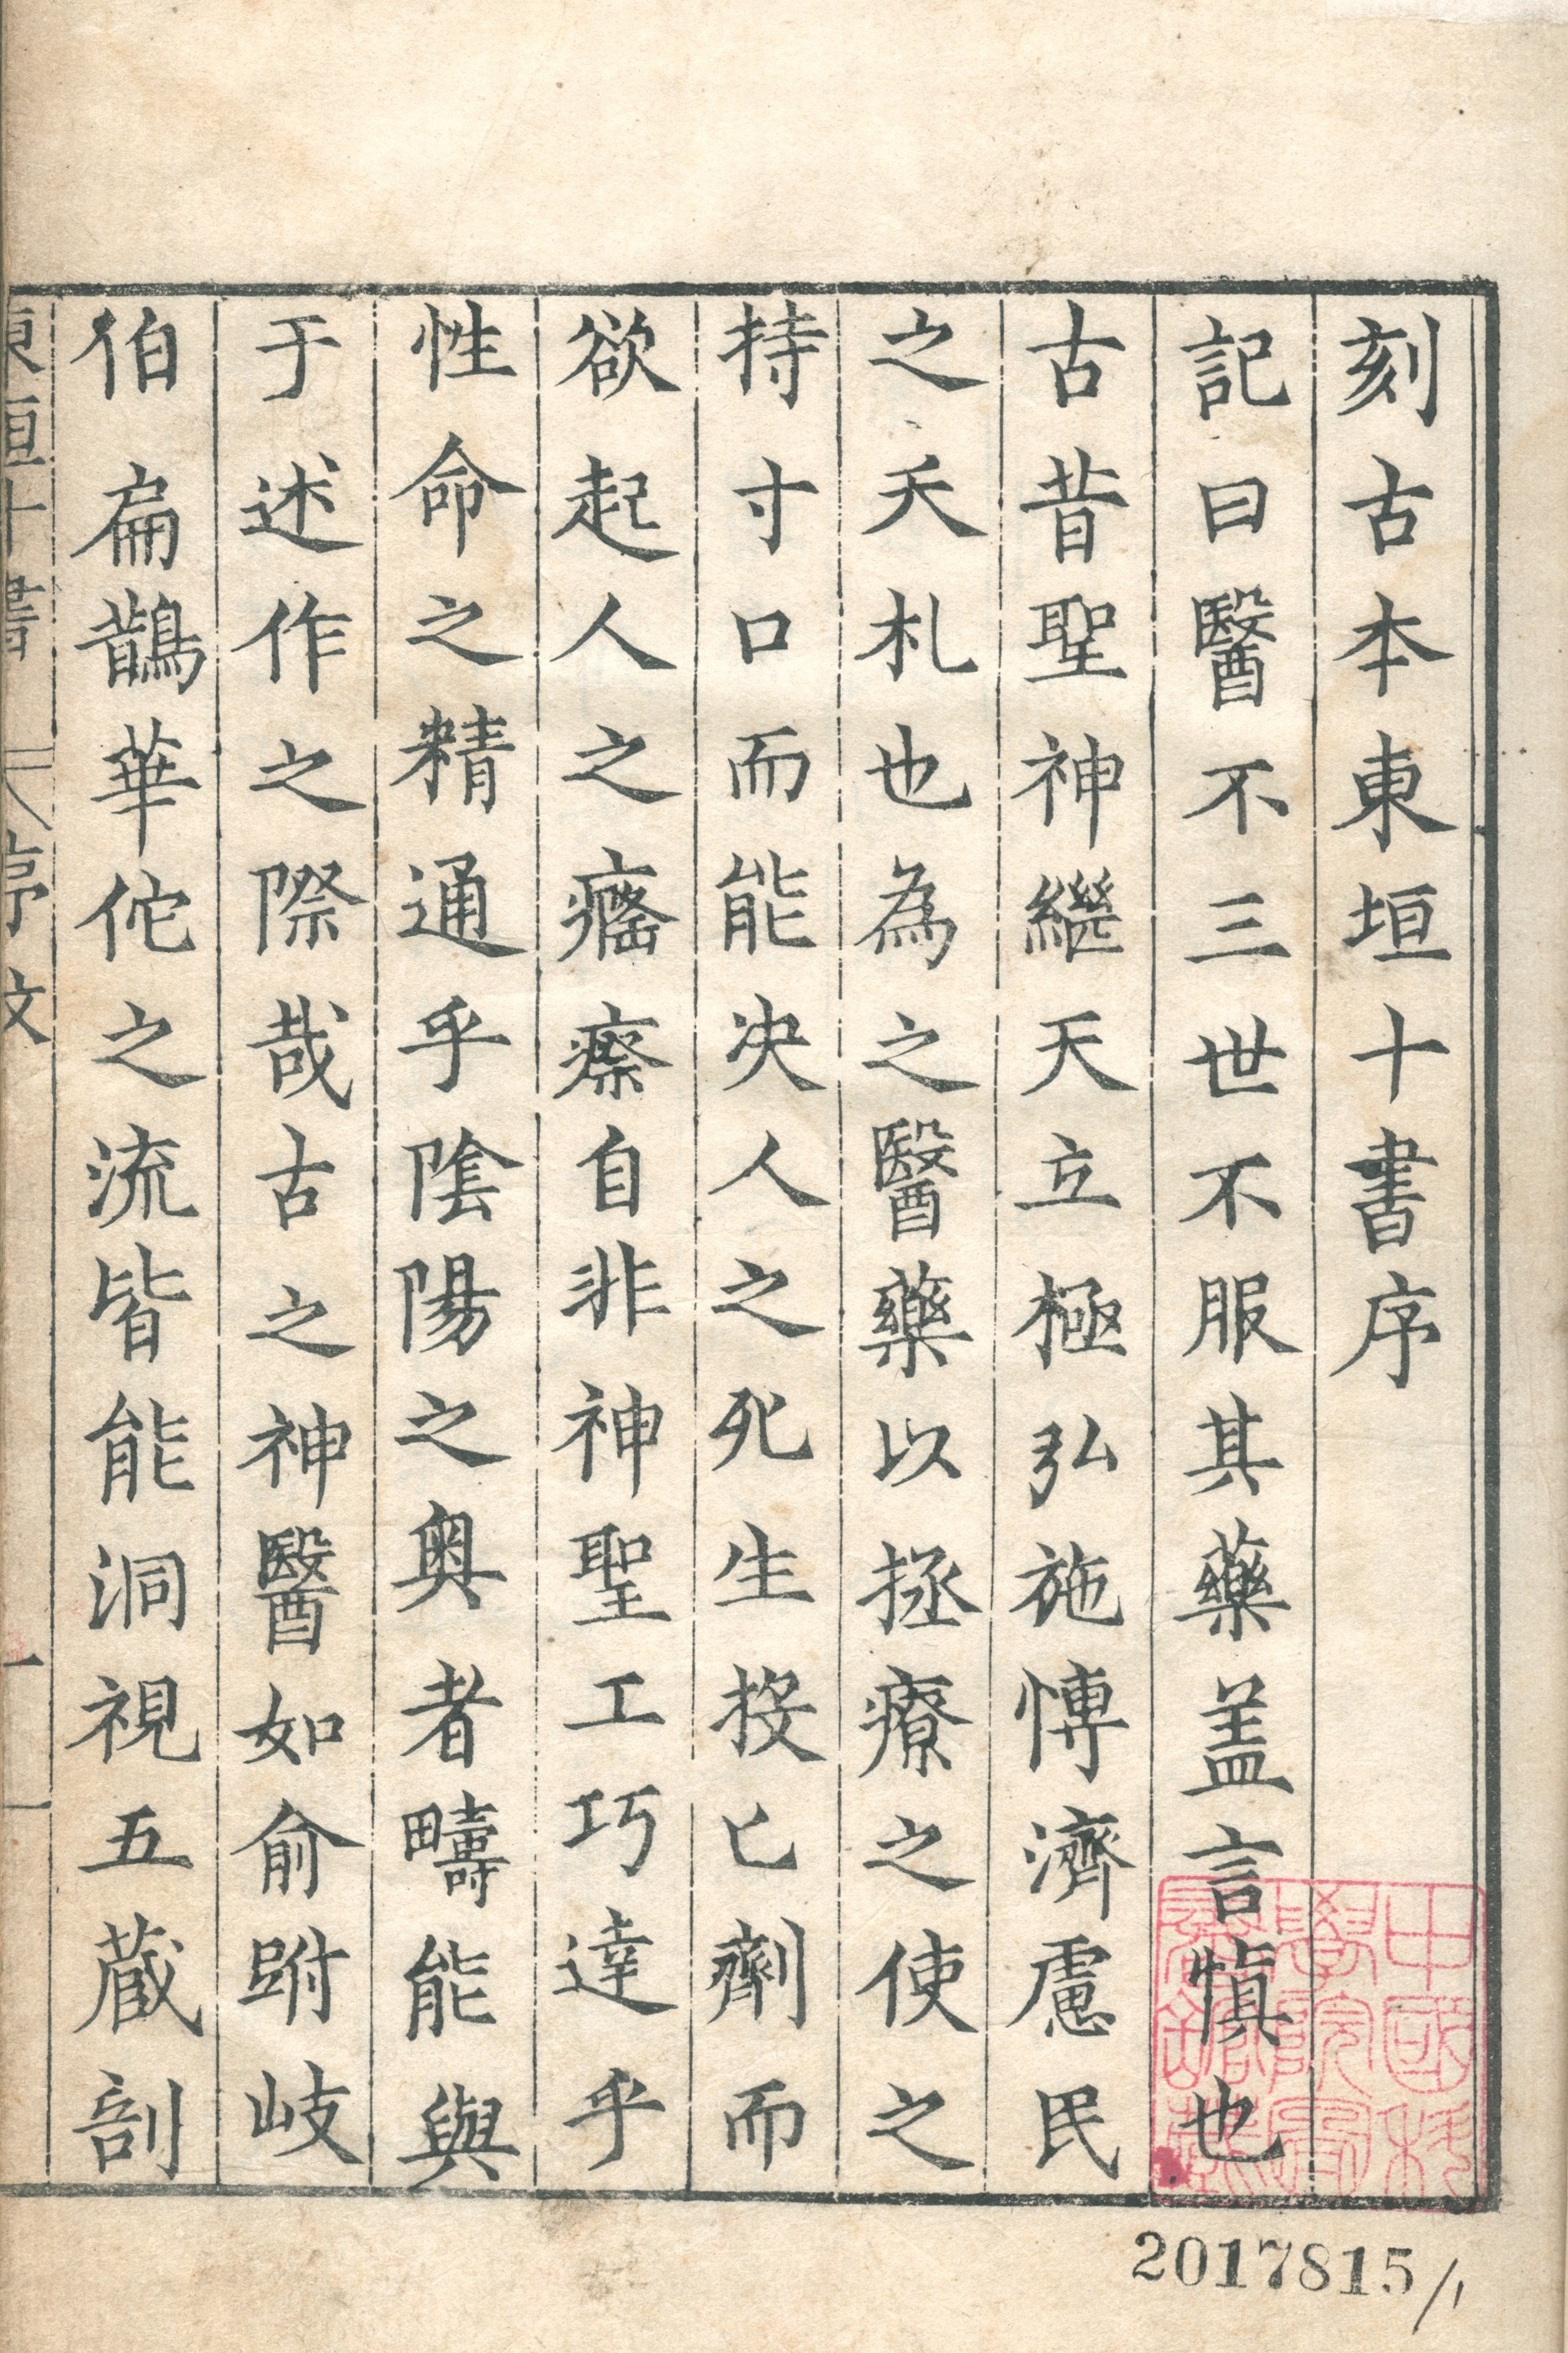 刻古本東垣十書序
記曰醫不三世不服其藥盖言慎也
古昔聖神繼天立極弘施愽濟慮民
之夭札也為之醫藥以拯療之使之
持寸口而能决人之死生投匕劑而
欲起人之癃瘵自非神聖工巧達乎
性命之精通乎隂陽之奥者疇能與
于述作之際哉古之神醫如俞跗岐
伯扁鵲華佗之流皆能洞視五蔵剖
東垣十書 序文 一
中國科
學院圖
書館藏
2017815/1